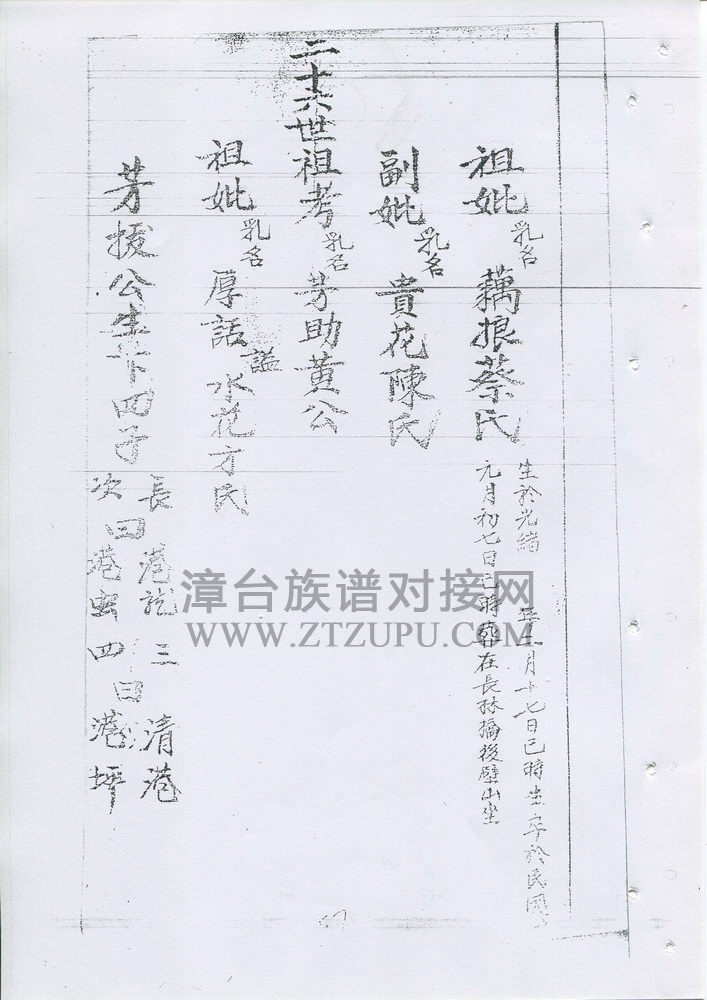 祖妣乳名藕娘蔡氏
生於光緒 年三月十七日巳時生卒於民國
元月初七日巳時葬在長林搧後壁山坐
副妣乳名貴花陳氏
二十六世祖考乳名芳助黃公
祖妣乳名厚話謚水花方氏
芳拔公生下四子
長 港龍三 清港
次曰港虫四曰港坪
漳台族谱对接网
WWW.ZTZUPU.COM